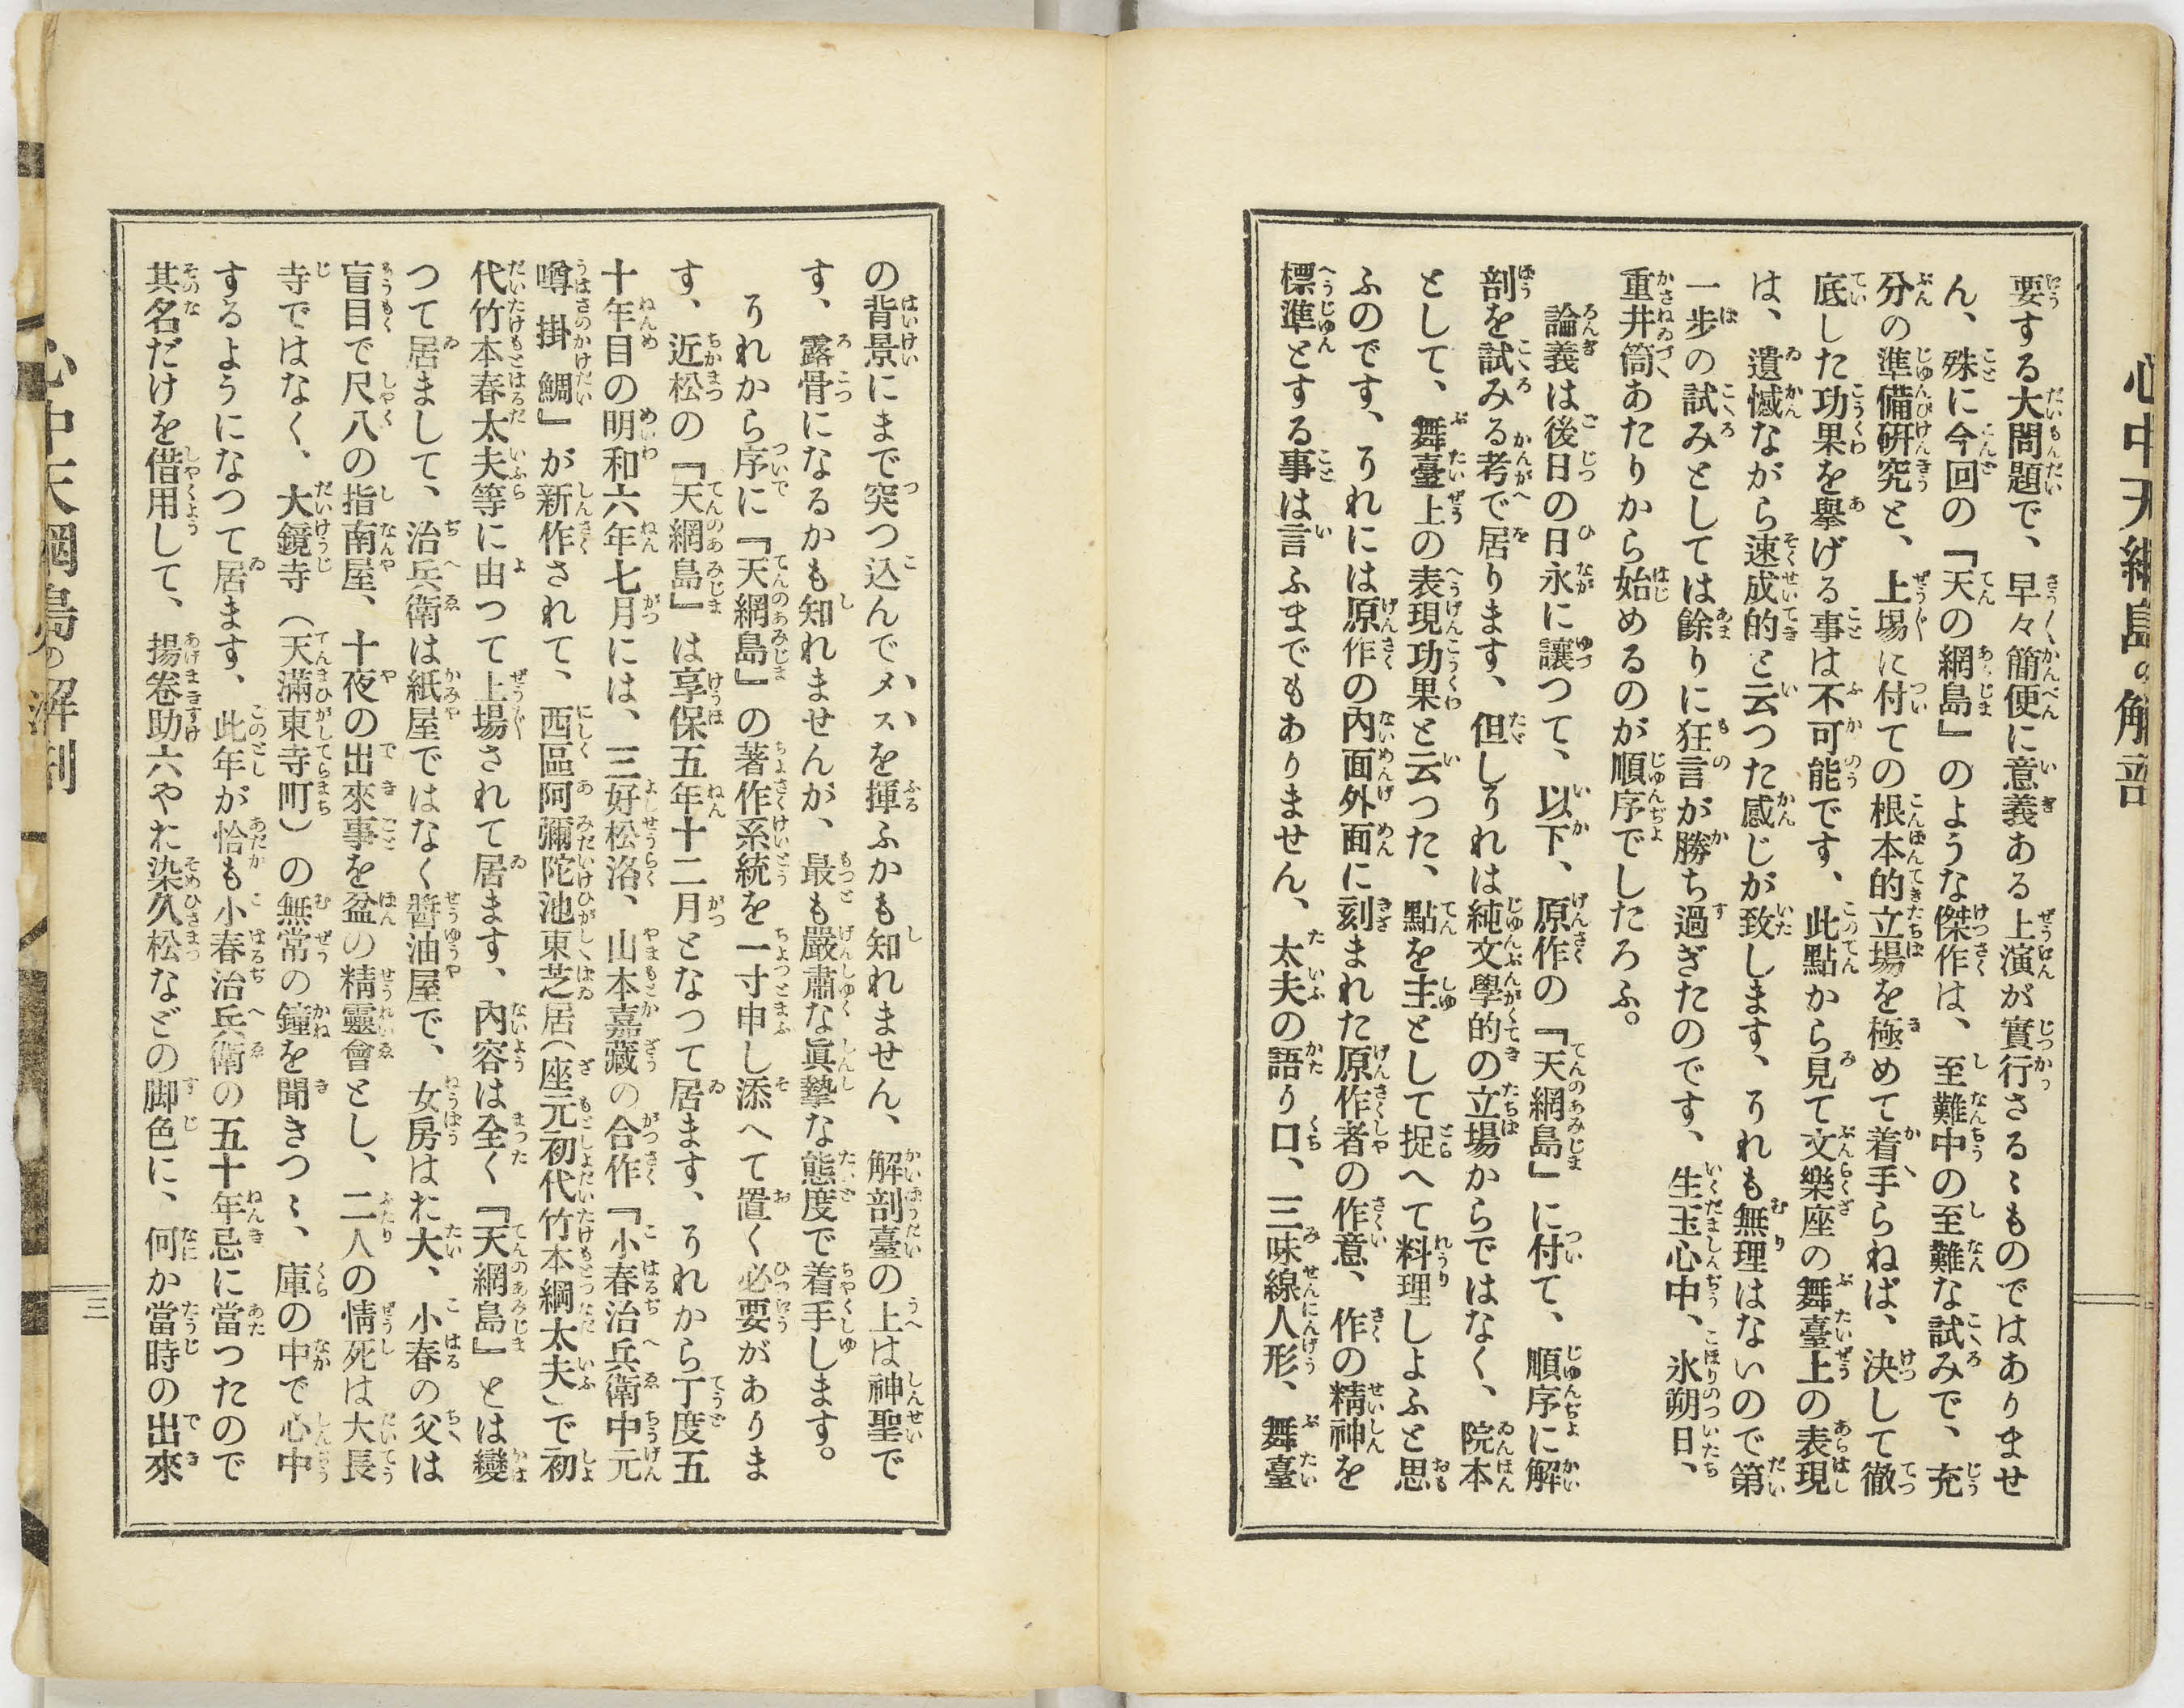 心中天網島の解剖
要する大問題で、早々簡便に意義ある上演が實行さるゝものではありませ
ん、殊に今回の『天の網島』のような傑作は、至難中の至難な試みで、充
分の準備研究と、上場に付ての根本的立場を極めて着手らねば、決して徹
底した功果を擧げる事は不可能です、此點から見て文樂座の舞臺上の表現
は、遺憾ながら速成的と云つた感じが致します、それも無理はないので第
一歩の試みとしては餘りに狂言が勝ち過ぎたのです、生玉心中、氷朔日、
重井筒あたりから始めるのが順序でしたろふ。
論義は後日の日永に讓つて、以下、原作の『天網島』に付て、順序に解
剖を試みる考で居ります、但しそれは純文學的の立場からではなく、院本
として、舞臺上の表現功果と云つた、點を主として捉へて料理しよふと思
ふのです、それには原作の內面外面に刻まれた原作者の作意、作の精神を
標準とする事は言ふまでもありません、太夫の語り口、三味線人形、舞臺
の背景にまで突つ込んでメスを揮ふかも知れません、解剖臺の上は神聖で
す、露骨になるかも知れませんが、最も嚴肅な眞摯な態度で着手します。
それから序に『天網島』の著作系統を一寸申し添へて置く必要がありま
す、近松の『天網島』は享保五年十二月となつて居ます、それから丁度五
十年目の明和六年七月には、三好松洛、山本嘉藏の合作『小春治兵衛中元
噂掛鯛』が新作されて、西區阿彌陀池東芝居(座元初代竹本綱太夫)で初
代竹本春太夫等に由つて上場されて居ます、內容は全く『天網島』とは變
つて居まして、治兵衛は紙屋ではなく醬油屋で、女房はお大、小春の父は
盲目で尺八の指南屋、十夜の出來事を盆の精靈會とし、二人の情死は大長
寺ではなく、大鏡寺(天滿東寺町)の無常の鐘を聞きつゝ、庫の中で心中
するようになつて居ます、此年が恰も小春治兵衛の五十年忌に當つたので
其名だけを借用して、揚卷助六やお染久松などの脚色に、何か當時の出來
心中天網島の解剖
三